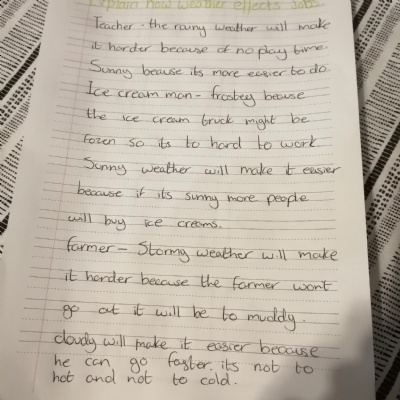 Explain how weather effects Jobs.
Teacher - the rainy weather will make
it harder because of no play time.
Sunny beause its more easier to do.
Ice cream man - frostey beause
the ice cream truck might be
frozen so its to hard to work
Sunny weather will make it easier
because if its sunny more people
will buy ice creams.
farmer - Stormy weather will make
it harder because the farmer wont
go out it will be to muddy.
cloudy will make it easier because
he can go faster. its not to
hot and not to cold.